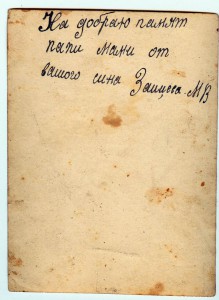 На добраю памят
папи мами от
вашого сина Зайцева МВ